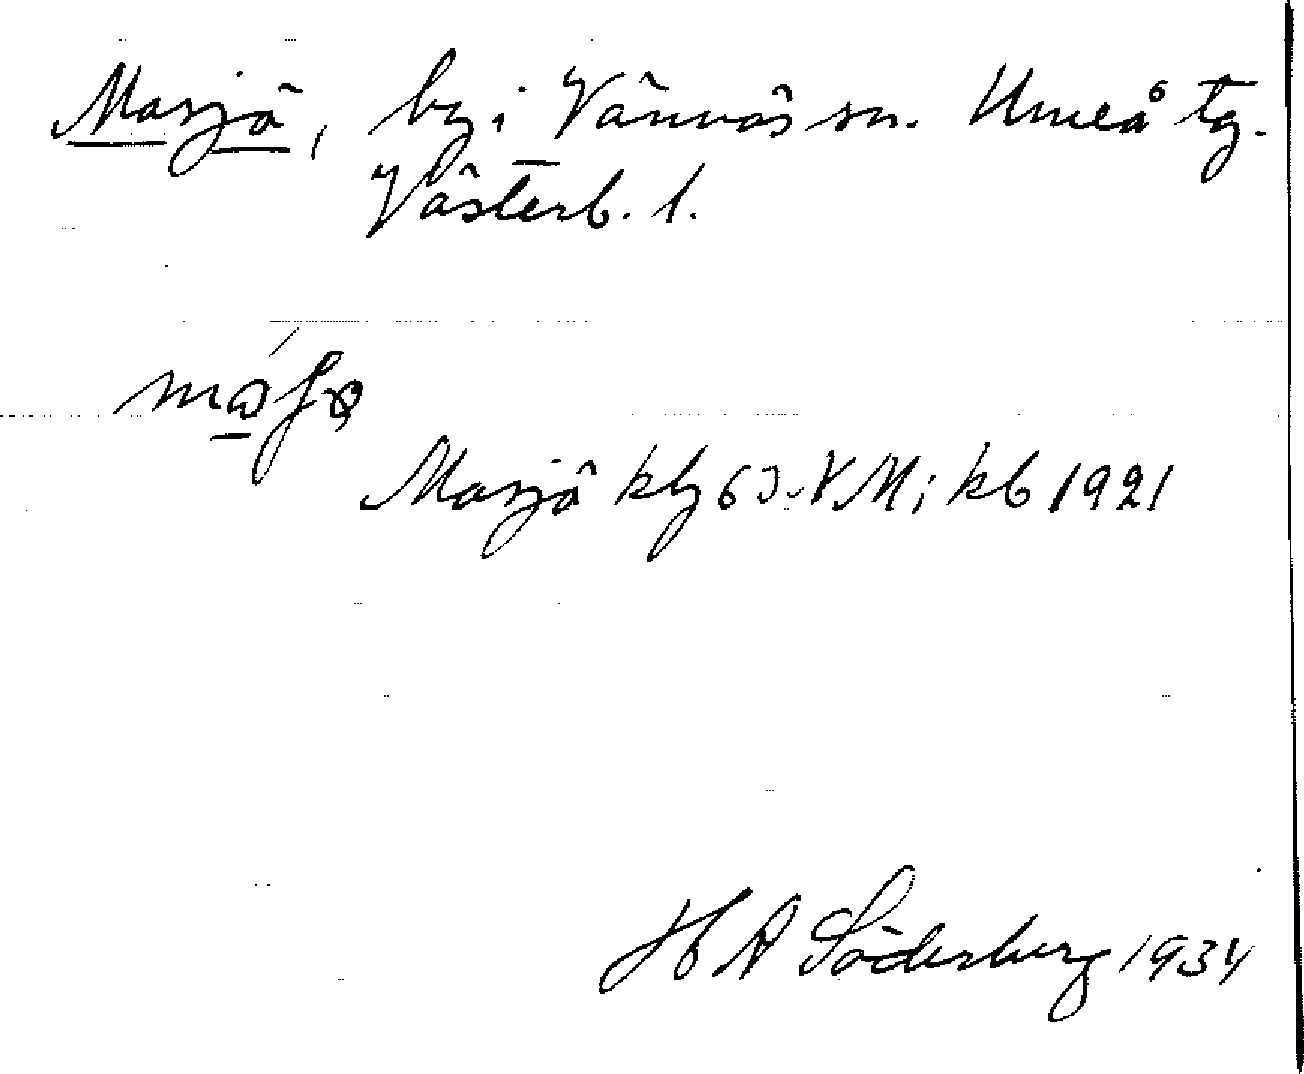 Marjö, by i Vännäs sn. Umeå tg.
Västerb. l.
Marjö kbg 63. V M i kb 1921
H A Söderberg 1934